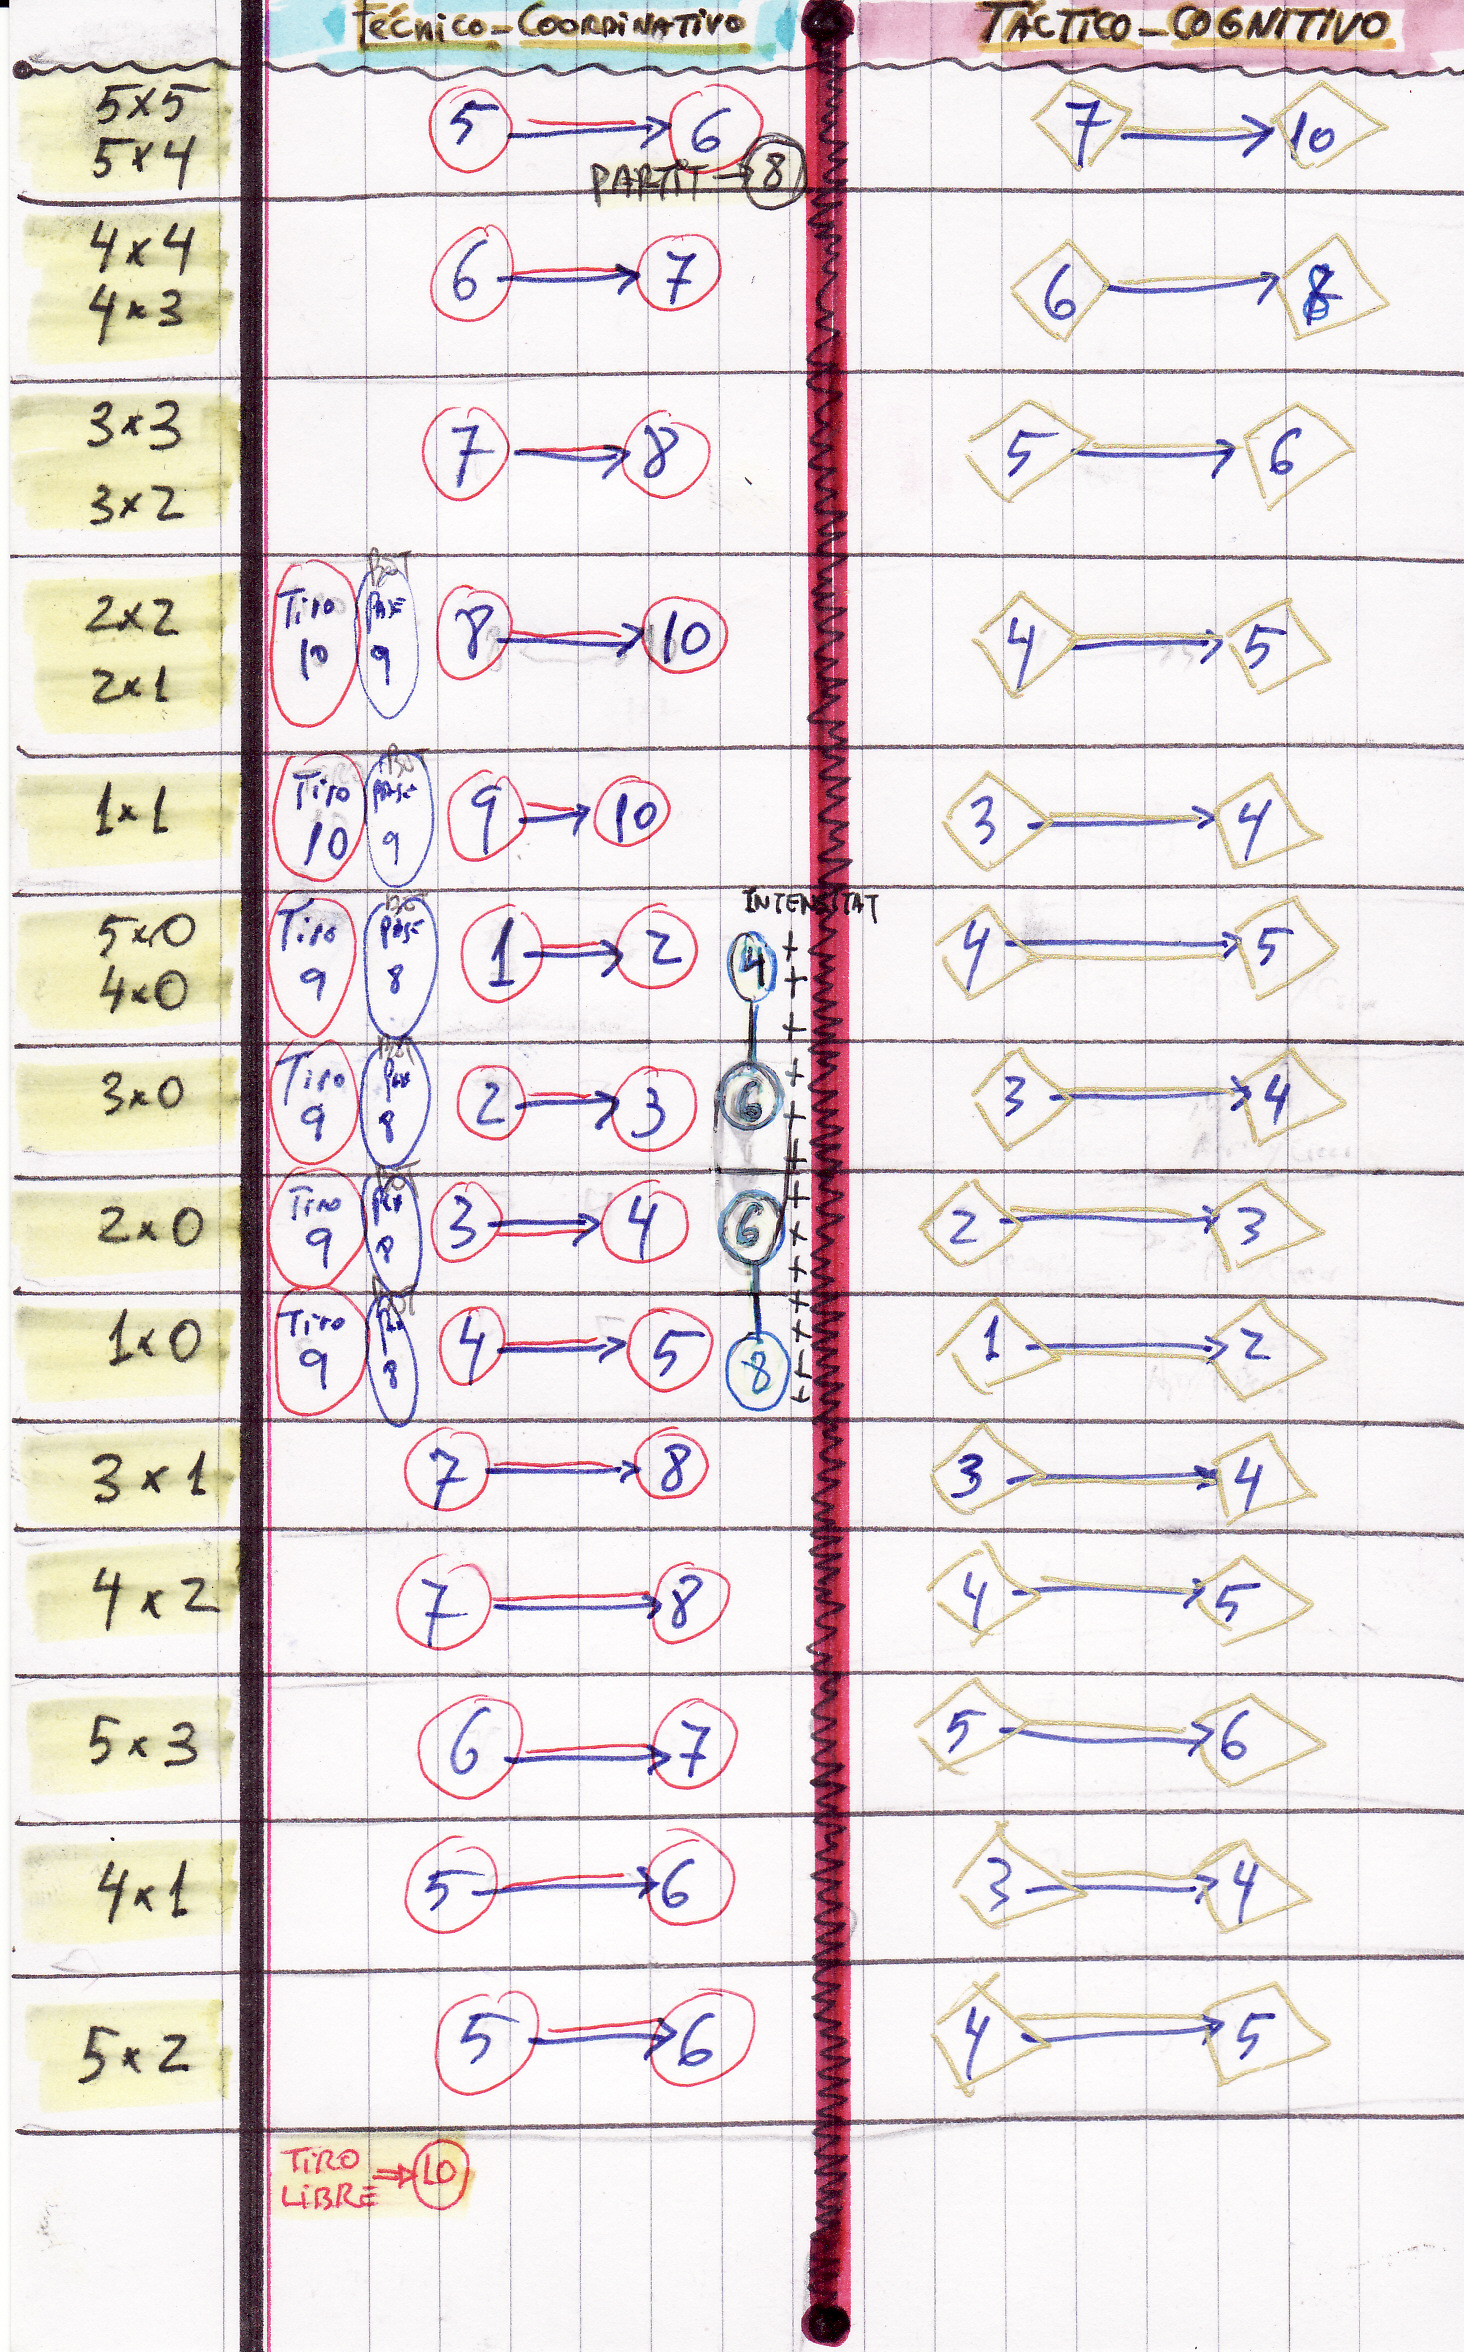 Técnico-Coordinativo TÁCTICO-COGNITIVO
5x5 5 → 6 7 → 10
5x4 PARTIT → 8
4x4 6 → 7 6 → 8
4x3
3x3 7 → 8 5 → 6
3x2
BOT
2x2 Tiro PASE 8 → 10 4 → 5
2x1 10 9
BOT
1x1 Tiro PASE 9 → 10 3 → 4
10 9
BOT INTENSITAT
5x0 Tiro PASE 1 → 2 4 4 → 5
4x0 9 8
BOT
3x0 Tiro PASE 2 → 3 6 3 → 4
9 8
BOT
2x0 Tiro 3 → 4 6 2 → 3
9 8
BOT
1x0 Tiro 4 → 5 8 1 → 2
9 8
3x1 7 → 8 3 → 4
4x2 7 → 8 4 → 5
5x3 6 → 7 5 → 6
4x1 5 → 6 3 → 4
5x2 5 → 6 4 → 5
TIRO ⇒ 10
LIBRE